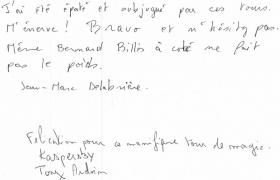 J'ai été épaté et subjugué par ces tours.
M'énerve! Bravo et n'hésity pas.
Même Bernard Billis à coté ne fait
pas le poids.
Jean-Marc Delabrière.
Félication pour ce manifique tour de magie.
Kaspersky
Tony